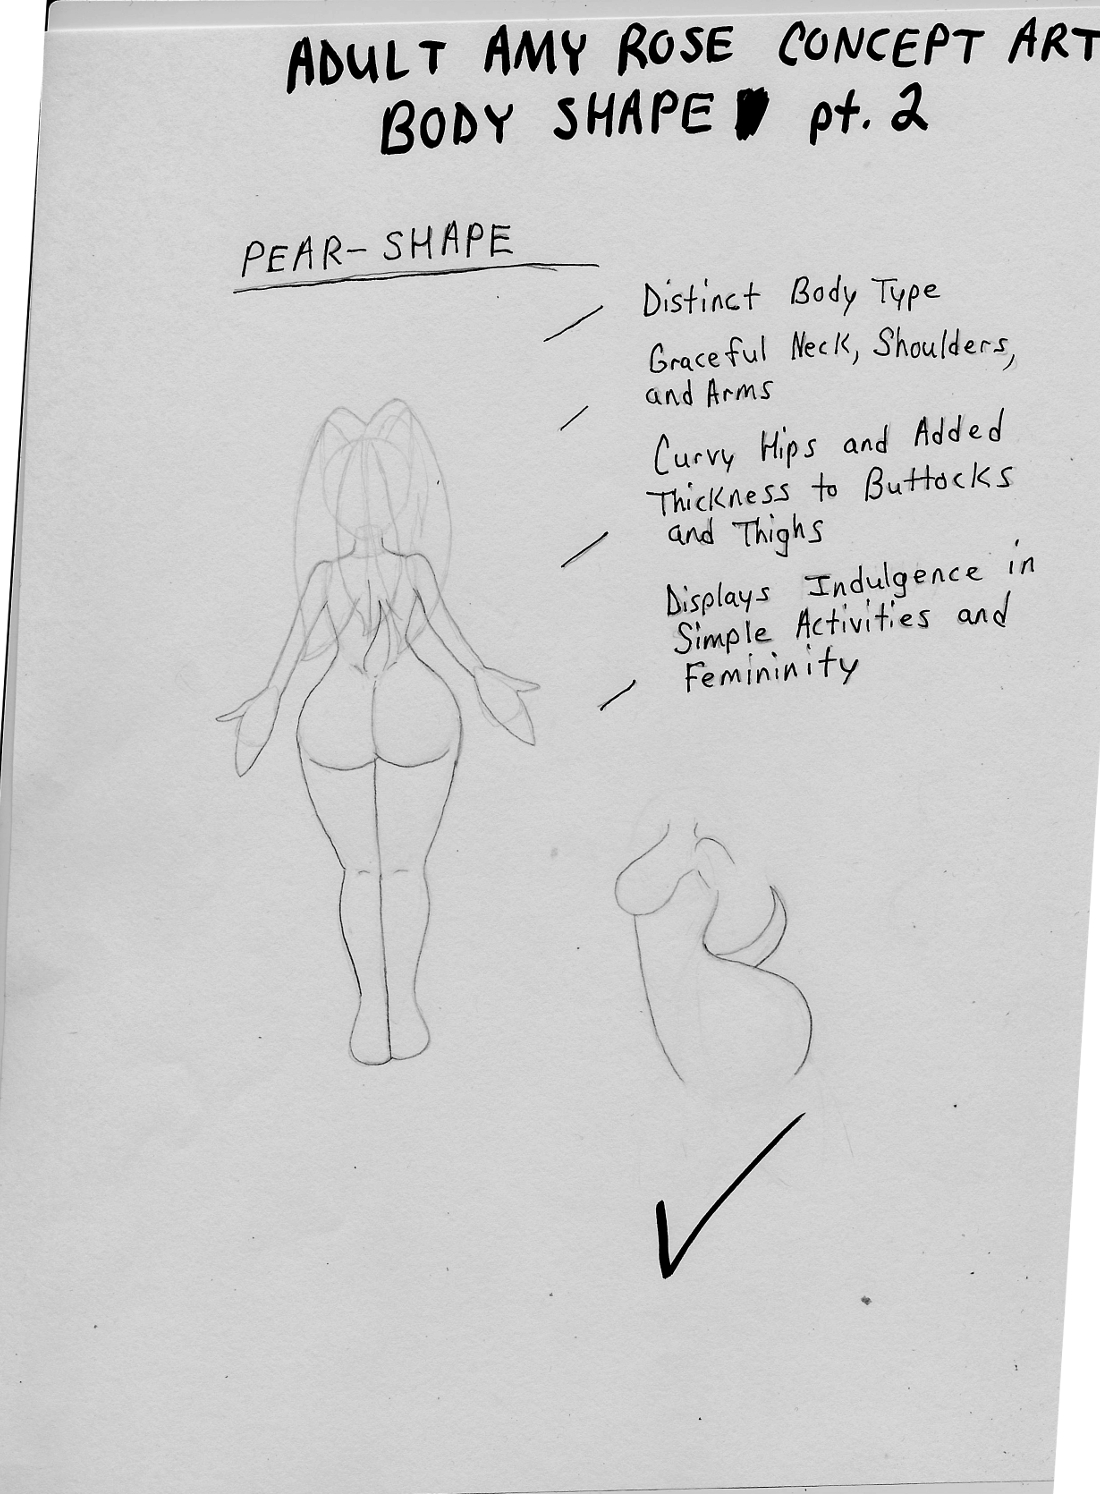 ADULT AMY ROSE CONCEPT ART
BODY SHAPE pt. 2
PEAR-SHAPE
Distinct Body Type
Graceful Neck, Shoulders,
and Arms
Curvy Hips and Added
Thickness to Buttocks
and Thighs
Displays Indulgence in
Simple Activities and
Femininity